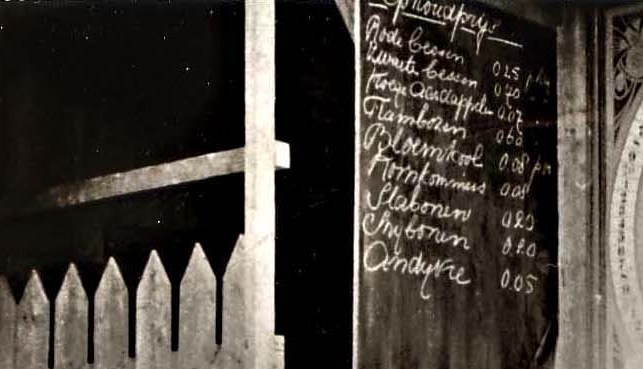 Rode bessen 0.25 p
Zwarte bessen 0.40
Vroege Aardappelen 0.07
Frambozen 0.60
Bloemkool 0.08 p
Komkommers 0.08
Slabonen 0.20
Snybonen 0.20
Andyvie 0.05